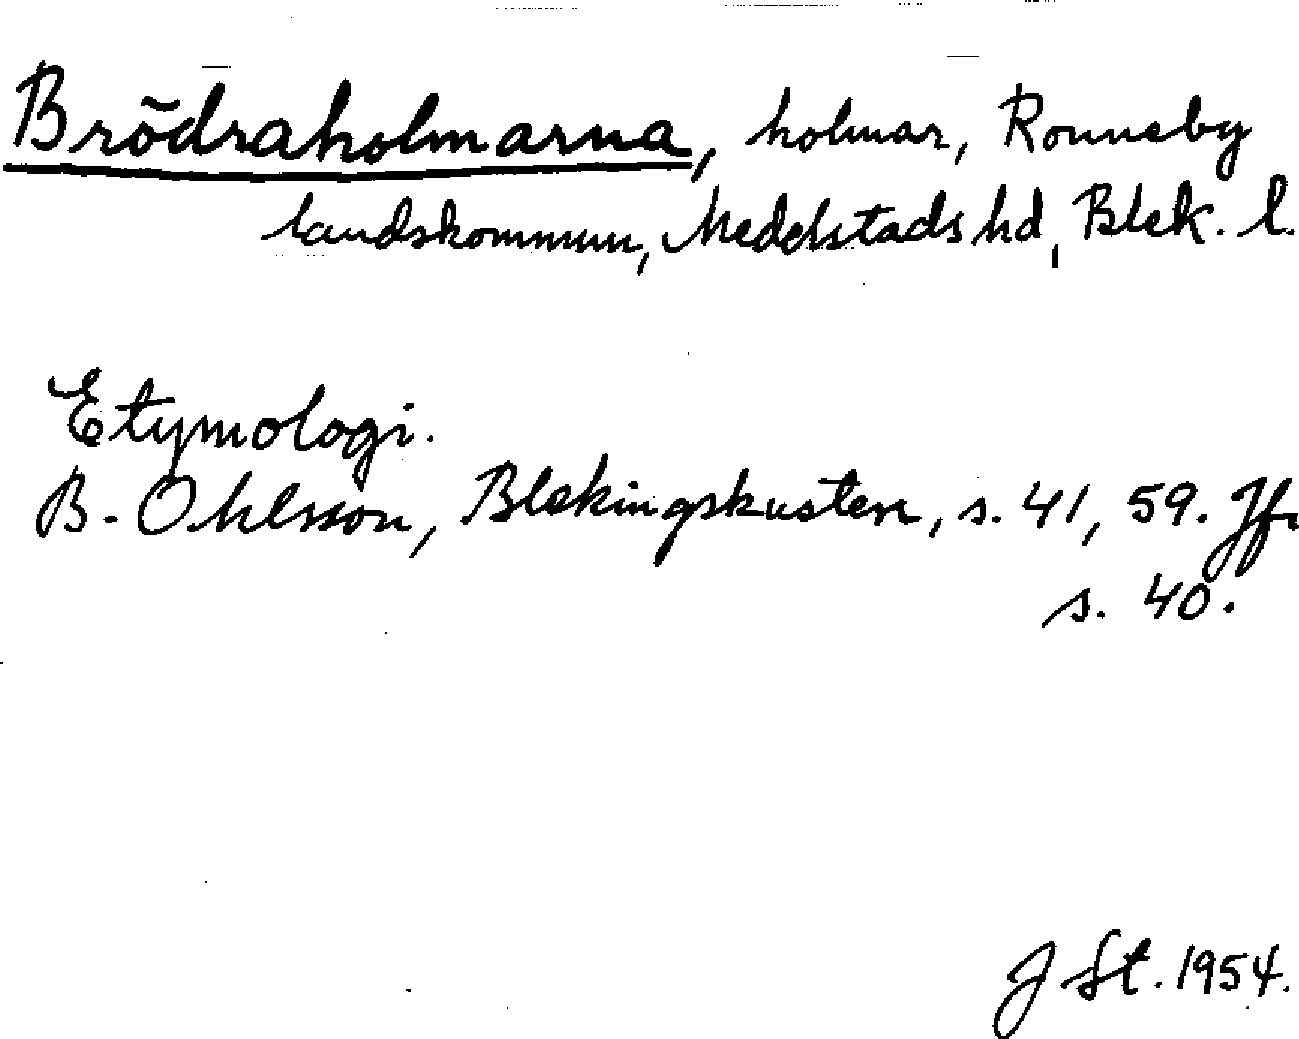 Brödraholmarna, holmar, Ronneby
landskommun, Medelstads hd, Blek. l.
Etymologi.
B. Ohlsson, Blekingskusten, s. 41, 59. Jfr
s. 40.
J St. 1954.